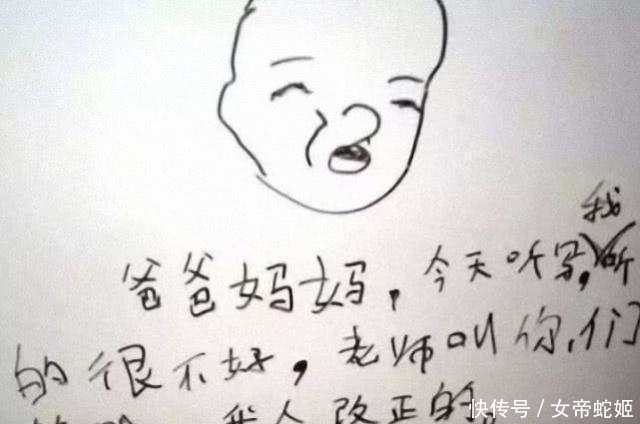 我
爸爸妈妈，今天听写，听
的很不好，老师叫你们
我会改正的。
快传号／女帝蛇姬